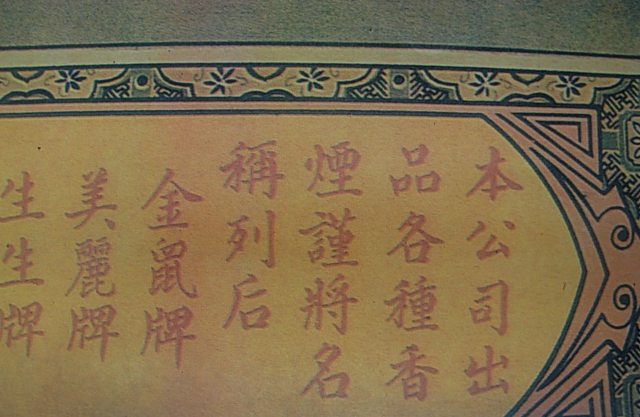 本公司出
品各種香
煙謹將名
稱列后
金鼠牌
美麗牌
生生牌